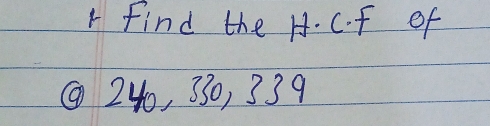 1 Find the H.C.F of
@ 240, 330, 339